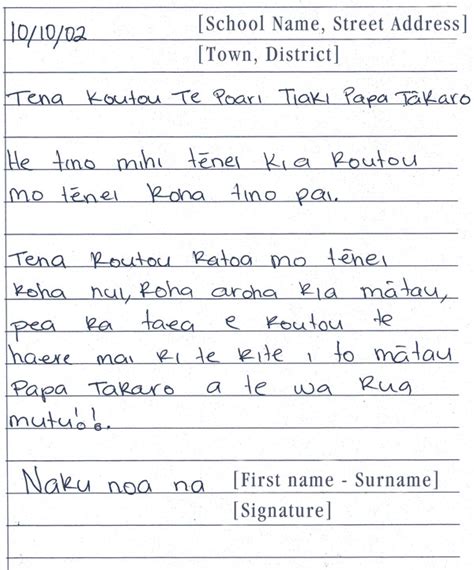 10/10/02 [School Name, Street Address]
[Town, District]
Tena Koutou Te Poari Tiaki Papa Tākaro
He tino mihi tēnei kia koutou
mo tēnei koha tino pai.
Tena koutou katoa mo tēnei
koha nui, koha aroha kia mātau,
pea ka taea e koutou te
haere mai ki te kite i to mātau
Papa Takaro a te wa kua
mutu!!.
Naku noa na [First name - Surname]
[Signature]